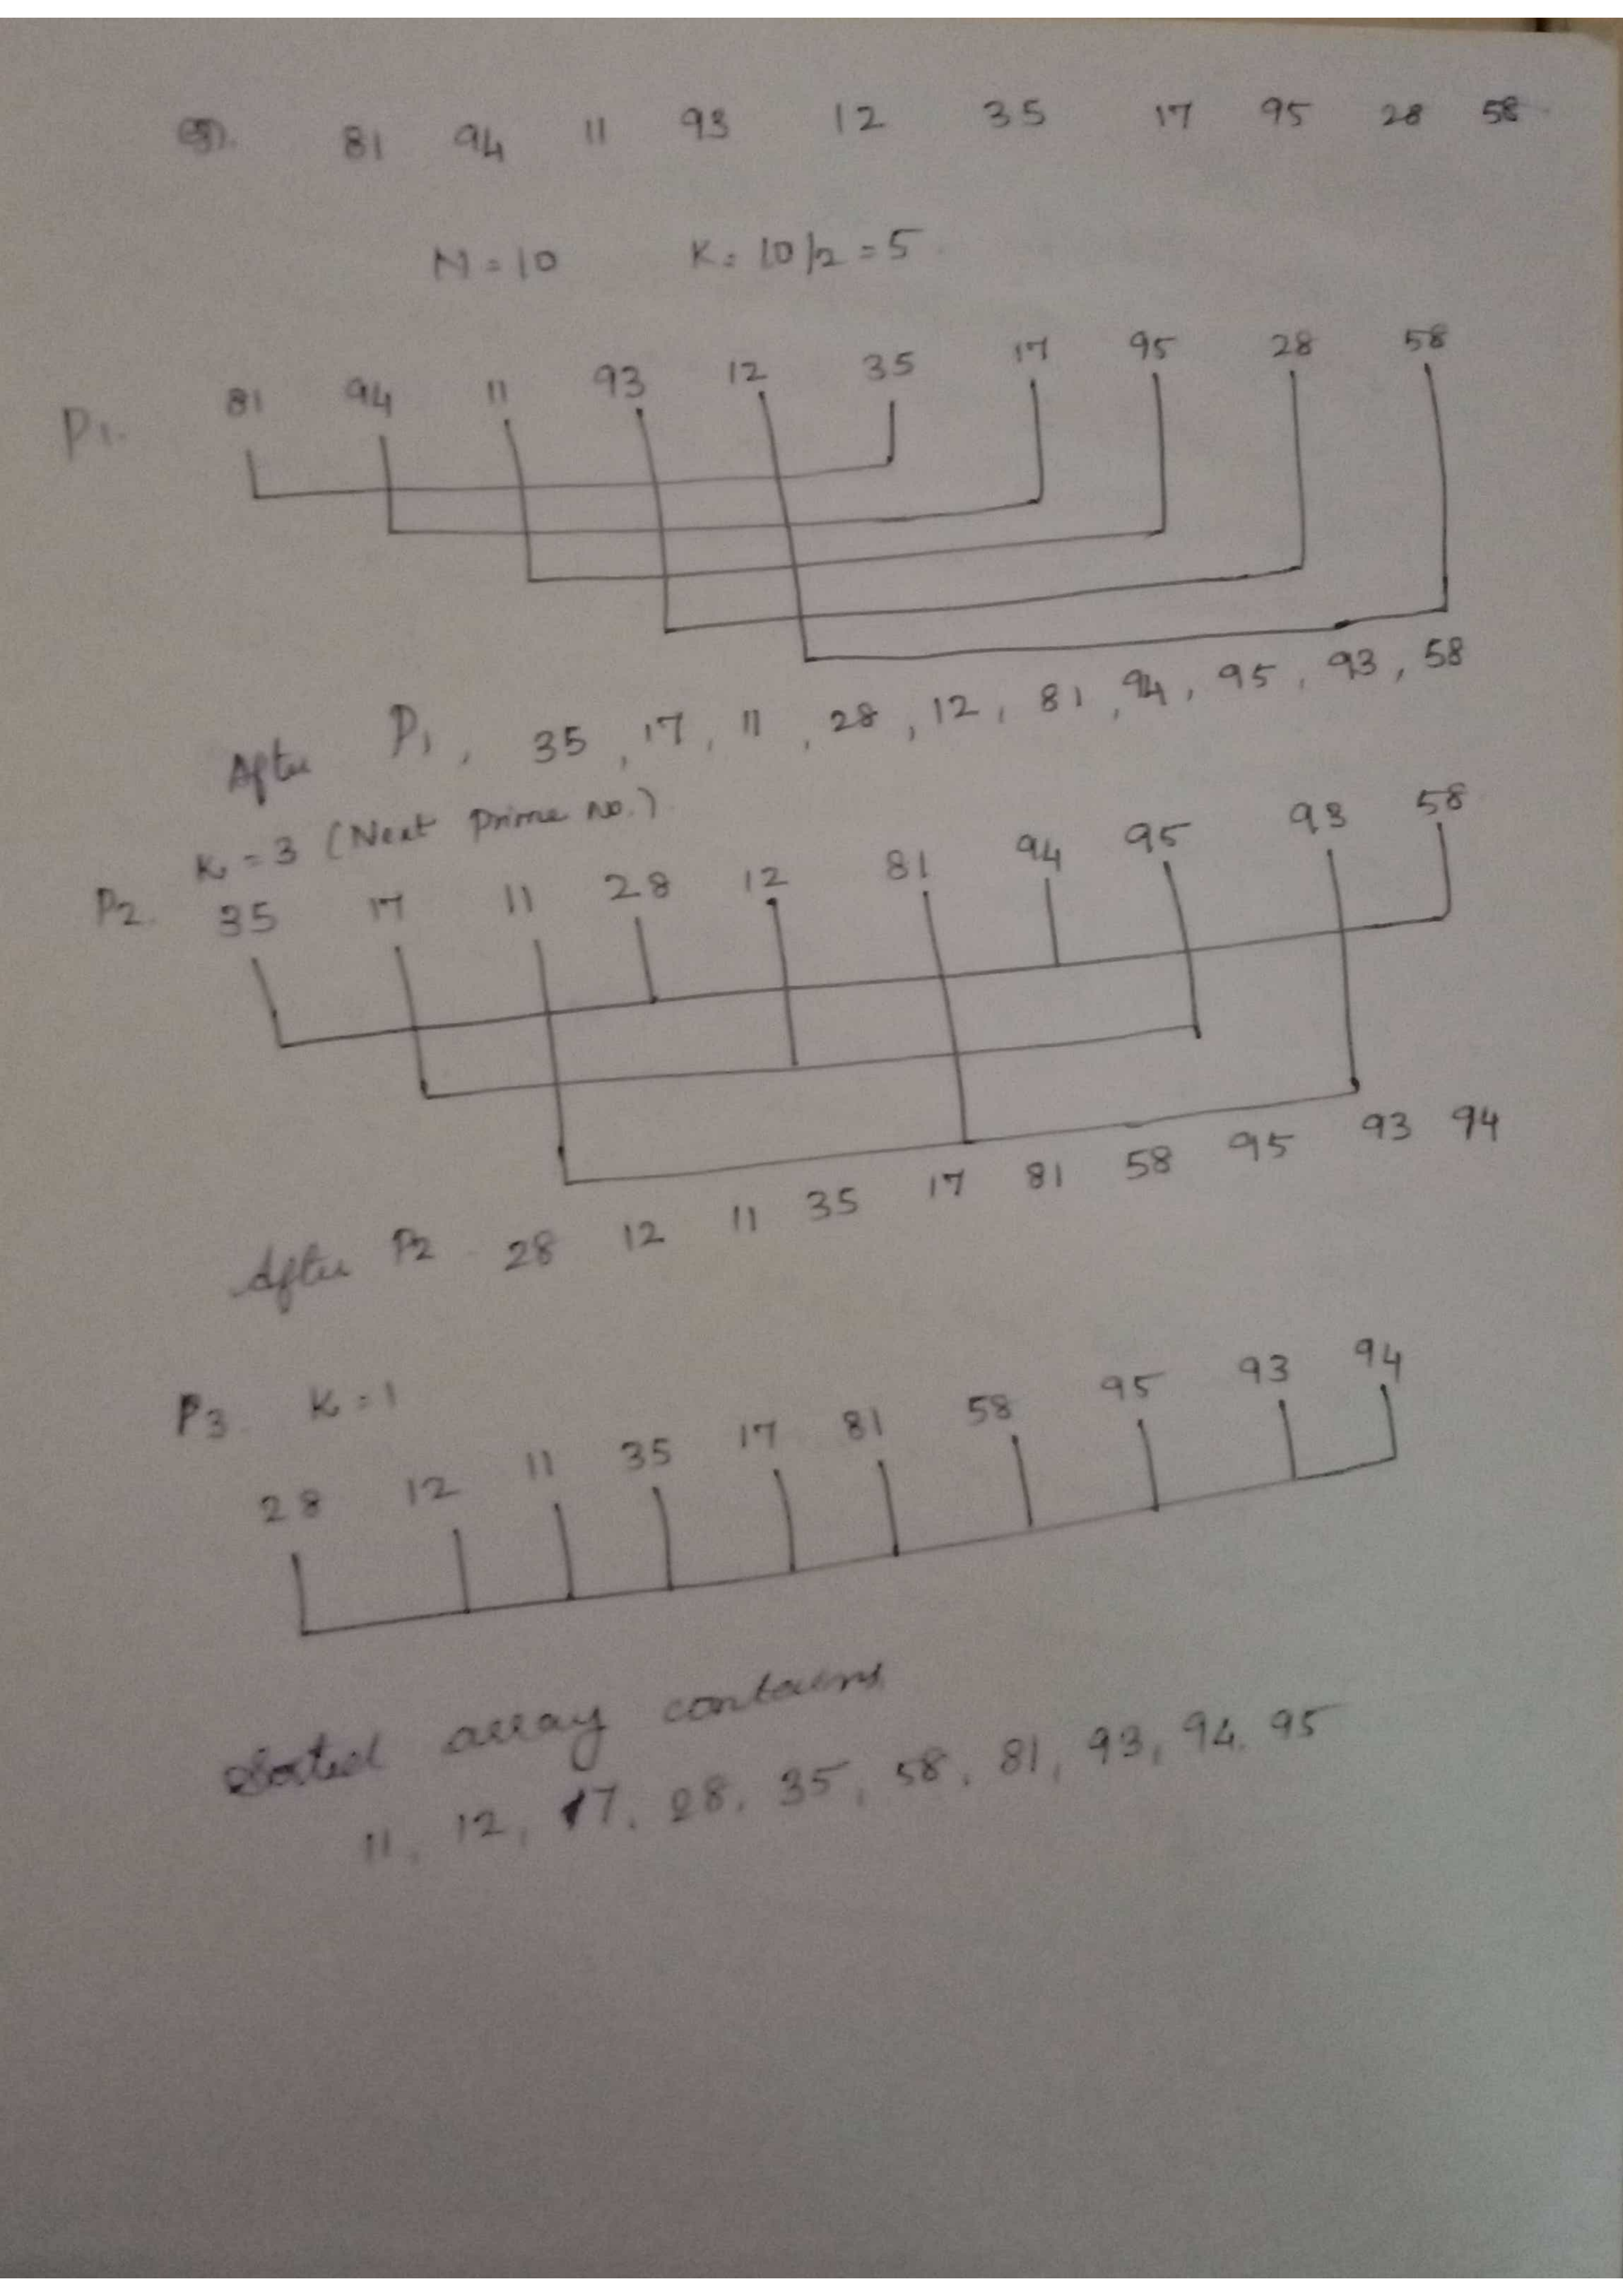 eg). 81 94 11 93 12 35 17 95 28 58
N=10 K= 10/2 = 5
P1. 81 94 11 93 12 35 17 95 28 58
After P1, 35, 17, 11, 28, 12, 81, 94, 95, 93, 58
K=3 (Next Prime no.)
P2. 35 17 11 28 12 81 94 95 93 58
After P2 28 12 11 35 17 81 58 95 93 94
P3. K=1
28 12 11 35 17 81 58 95 93 94
Sorted array contains
11, 12, 17, 28, 35, 58, 81, 93, 94. 95